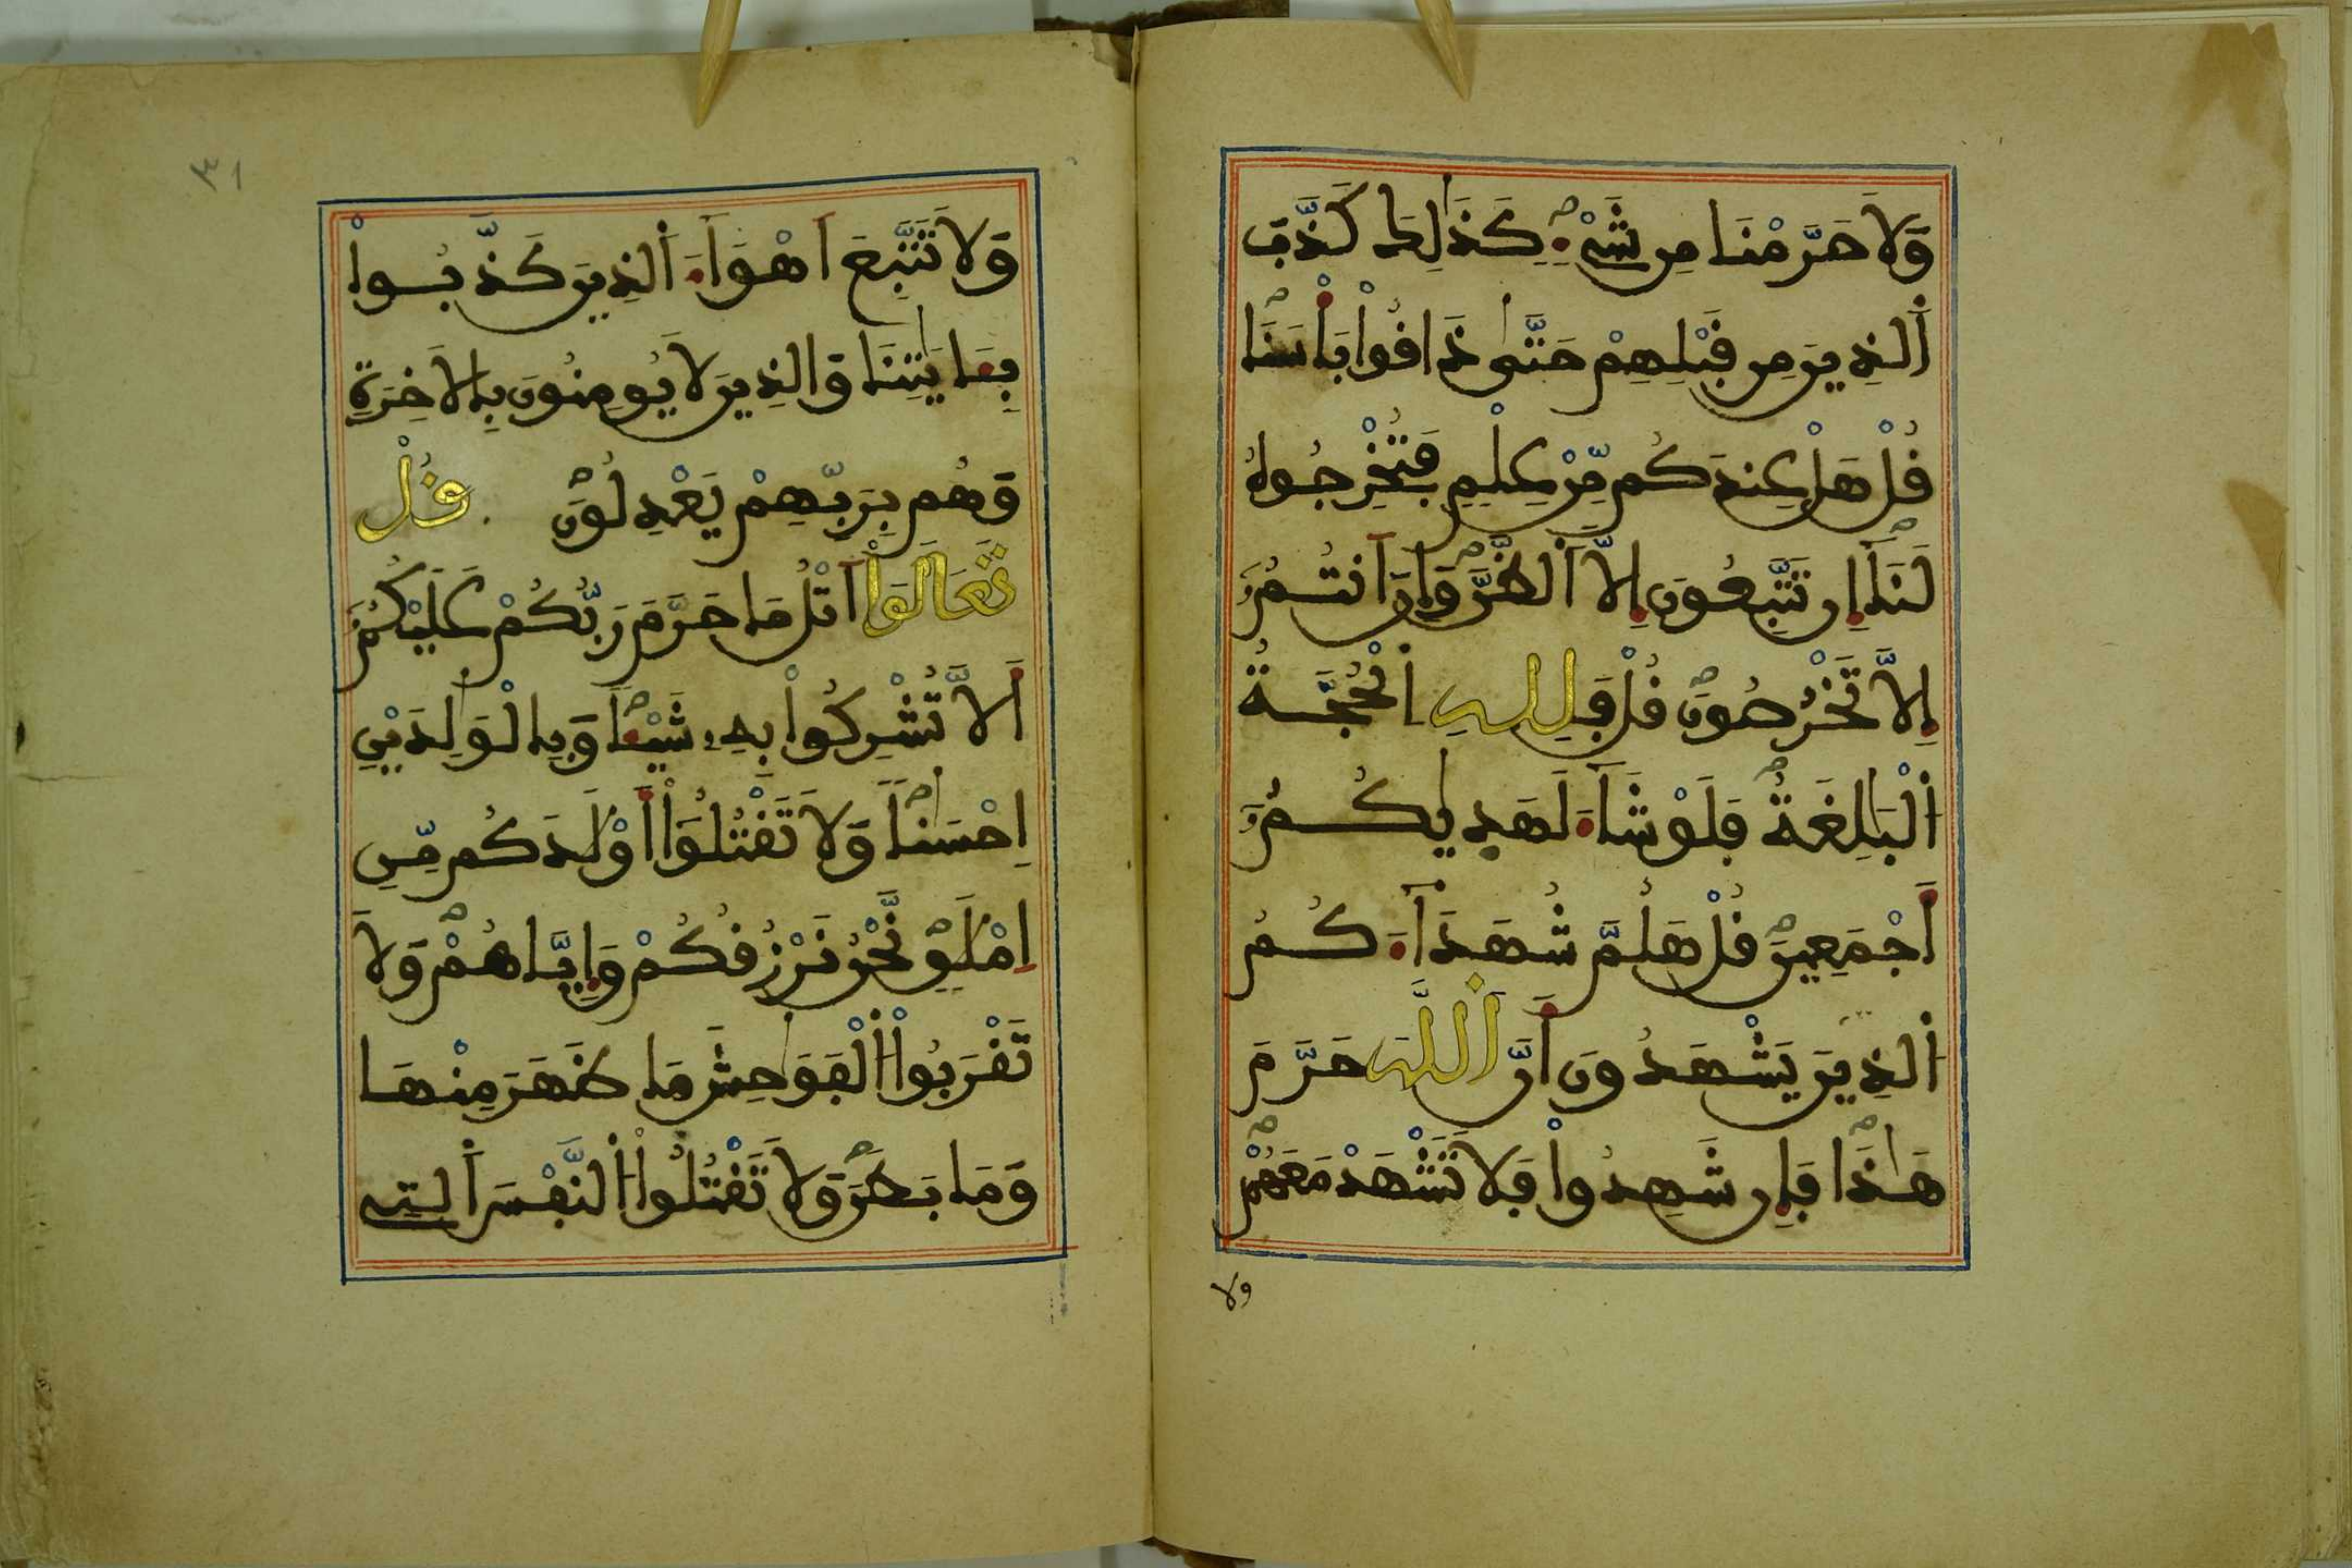 وَلَا حَرَّمْنَا مِن شَےْءٖ كَذَٰلِكَ كَذَّبَ
اَ۬لذِينَ مِن قَبْلِهِمْ حَتَّىٰ ذَاقُواْ بَأْسَنَا
قُلْ هَلْ عِندَكُم مِّنْ عِلْمٖ فَتُخْرِجُوهُ
لَنَآ إِن تَتَّبِعُونَ إِلَّا اَ۬لظَّنَّ وَإِنَ اَنتُمُۥٓ
إِلَّا تَخْرُصُونَ قُلْ فَلِلهِ اِ۬لْحُجَّةُ
اُ۬لْبَٰلِغَةُ فَلَوْ شَآءَ لَهَدٜيٰكُمُۥٓ
أَجْمَعِينَ قُلْ هَلُمَّ شُهَدَآءَكُمُ
اُ۬لذِينَ يَشْهَدُونَ أَنَّ اَ۬للَّهَ حَرَّمَ
هَٰذَا فَإِن شَهِدُواْ فَلَا تَشْهَدْ مَعَهُمْ
ولا
٣١
وَلَا تَتَّبِعَ اَهْوَآءَ اَ۬لذِينَ كَذَّبُواْ
بِـَٔايَٰتِنَا وَالذِينَ لَا يُومِنُونَ بِالَاخِرَةِ
وَهُم بِرَبِّهِمْ يَعْدِلُونَ قُلْ
تَعَالَوَاْ اَتْلُ مَا حَرَّمَ رَبُّكُمْ عَلَيْكُمُۥٓ
أَلَّا تُشْرِكُواْ بِهِۦ شَيْـٔاٗ وَبِالْوَٰلِدَيْنِ
إِحْسَٰناٗ وَلَا تَقْتُلُوٓاْ أَوْلَٰدَكُم مِّنِ
اِمْلَٰقٖ نَّحْنُ نَرْزُقُكُمْ وَإِيَّاهُمْ وَلَا
تَقْرَبُواْ اُ۬لْفَوَٰحِشَ مَا ظَهَرَ مِنْهَا
وَمَا بَطَنَ وَلَا تَقْتُلُواْ اُ۬لنَّفْسَ اَ۬لتِے